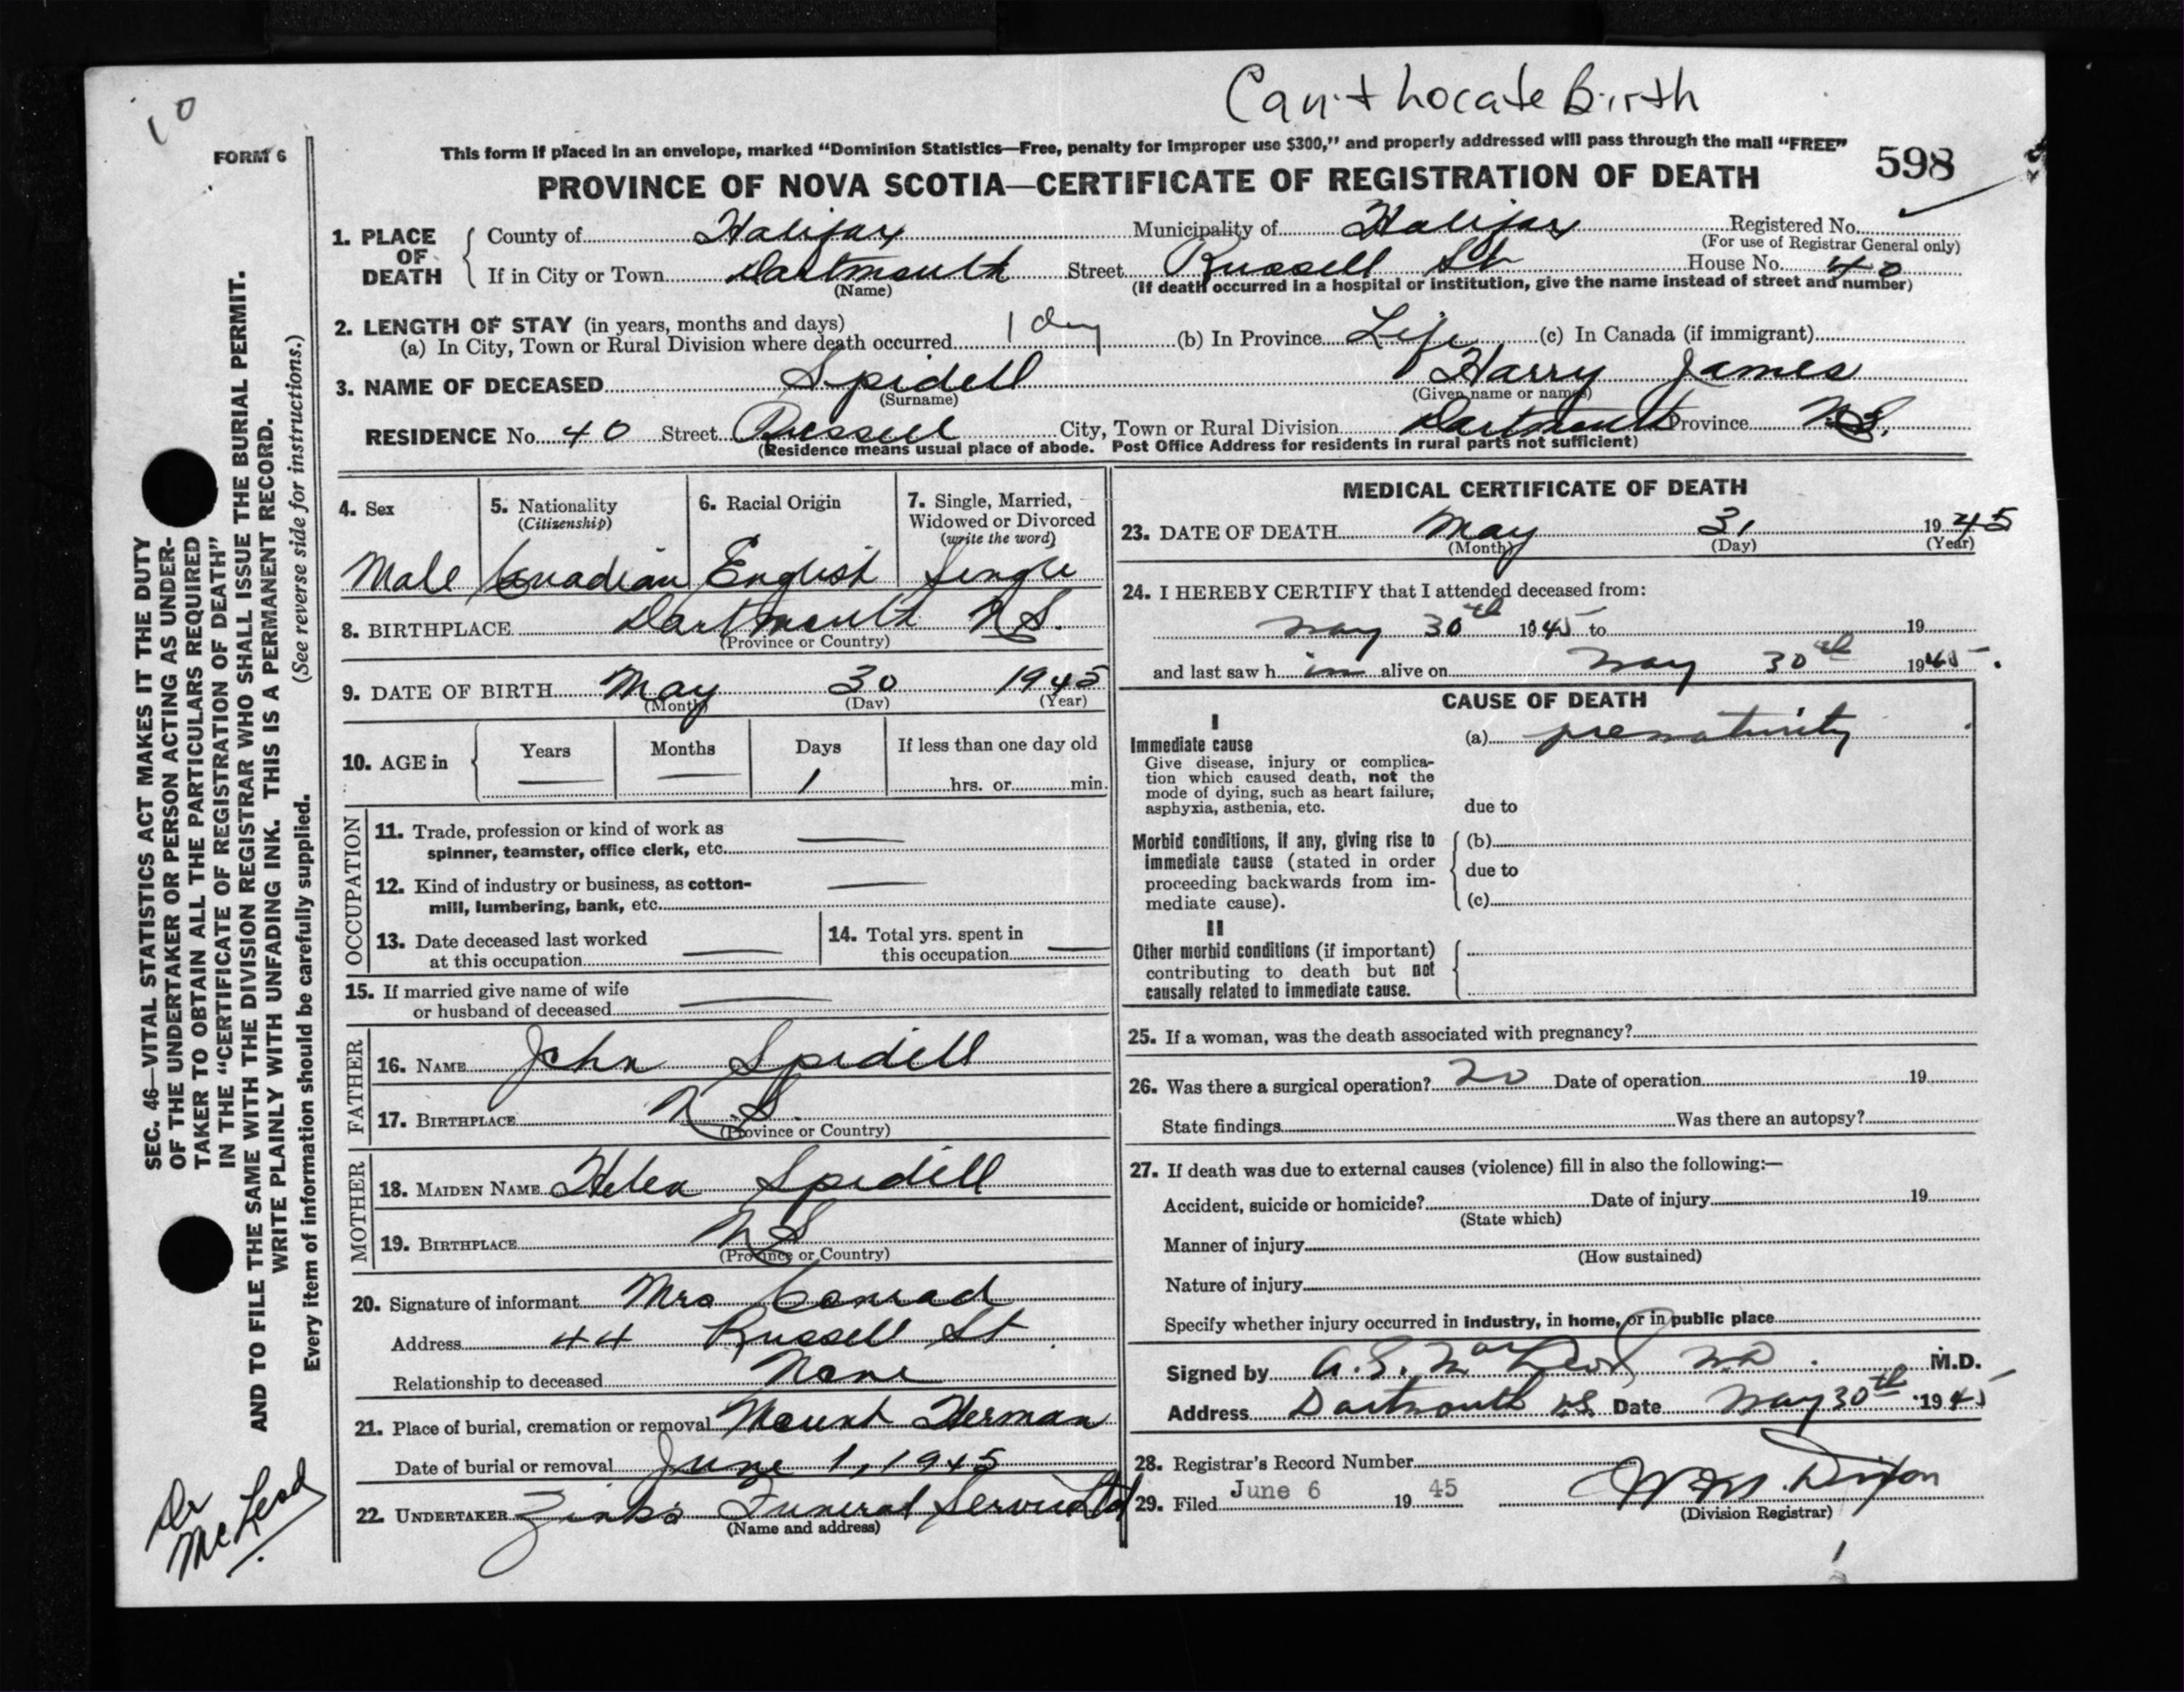 Can't Locate Birth
10
FORM 6
This form if placed in an envelope, marked "Dominion Statistics—Free, penalty for improper use $300," and properly addressed will pass through the mail "FREE"
598
PROVINCE OF NOVA SCOTIA—CERTIFICATE OF REGISTRATION OF DEATH
1. PLACE OF DEATH
County of Halifax Municipality of Halifax Registered No.
(For use of Registrar General only)
If in City or Town Dartmouth Street Russell St House No. 40
(Name) (If death occurred in a hospital or institution, give the name instead of street and number)
2. LENGTH OF STAY (in years, months and days)
(a) In City, Town or Rural Division where death occurred 1 day (b) In Province Life (c) In Canada (if immigrant)
3. NAME OF DECEASED Spidell Harry James
(Surname) (Given name or names)
RESIDENCE No. 40 Street Russell City, Town or Rural Division Dartmouth Province N.S.
(Residence means usual place of abode. Post Office Address for residents in rural parts not sufficient)
4. Sex
Male
5. Nationality
(Citizenship)
Canadian
6. Racial Origin
English
7. Single, Married,
Widowed or Divorced
(write the word)
Single
8. BIRTHPLACE Dartmouth N.S.
(Province or Country)
9. DATE OF BIRTH May 30 1945
(Month) (Day) (Year)
10. AGE in
Years Months Days If less than one day old
— — 1 hrs. or min.
OCCUPATION
11. Trade, profession or kind of work as —
spinner, teamster, office clerk, etc.
12. Kind of industry or business, as cotton- —
mill, lumbering, bank, etc.
13. Date deceased last worked
at this occupation —
14. Total yrs. spent in
this occupation —
15. If married give name of wife
or husband of deceased —
FATHER
16. NAME John Spidell
17. BIRTHPLACE N.S.
(Province or Country)
MOTHER
18. MAIDEN NAME Helen Spidell
19. BIRTHPLACE N S
(Province or Country)
20. Signature of informant Mrs Conrad
Address 44 Russell St.
Relationship to deceased None
21. Place of burial, cremation or removal Mount Herman
Date of burial or removal June 1, 1945
22. UNDERTAKER Zinks Funeral Service Ltd
(Name and address)
MEDICAL CERTIFICATE OF DEATH
23. DATE OF DEATH May 31 1945
(Month) (Day) (Year)
24. I HEREBY CERTIFY that I attended deceased from:
May 30th 1945 to 19
and last saw him alive on May 30th 1945.
CAUSE OF DEATH
I
Immediate cause (a) prematurity
Give disease, injury or complica-
tion which caused death, not the
mode of dying, such as heart failure,
asphyxia, asthenia, etc. due to
Morbid conditions, if any, giving rise to (b)
immediate cause (stated in order due to
proceeding backwards from im-
mediate cause). (c)
II
Other morbid conditions (if important)
contributing to death but not
causally related to immediate cause.
25. If a woman, was the death associated with pregnancy?
26. Was there a surgical operation? no Date of operation 19
State findings Was there an autopsy?
27. If death was due to external causes (violence) fill in also the following:—
Accident, suicide or homicide? Date of injury 19
(State which)
Manner of injury
(How sustained)
Nature of injury
Specify whether injury occurred in industry, in home, or in public place
Signed by A. S. MacLeod M.D. M.D.
Address Dartmouth N.S. Date May 30th 1945
28. Registrar's Record Number
29. Filed June 6 19 45 Dixon
(Division Registrar)
SEC. 46—VITAL STATISTICS ACT MAKES IT THE DUTY
OF THE UNDERTAKER OR PERSON ACTING AS UNDER-
TAKER TO OBTAIN ALL THE PARTICULARS REQUIRED
IN THE "CERTIFICATE OF REGISTRATION OF DEATH"
AND TO FILE THE SAME WITH THE DIVISION REGISTRAR WHO SHALL ISSUE THE BURIAL PERMIT.
WRITE PLAINLY WITH UNFADING INK. THIS IS A PERMANENT RECORD.
Every item of information should be carefully supplied. (See reverse side for instructions.)
Dr
McLeod